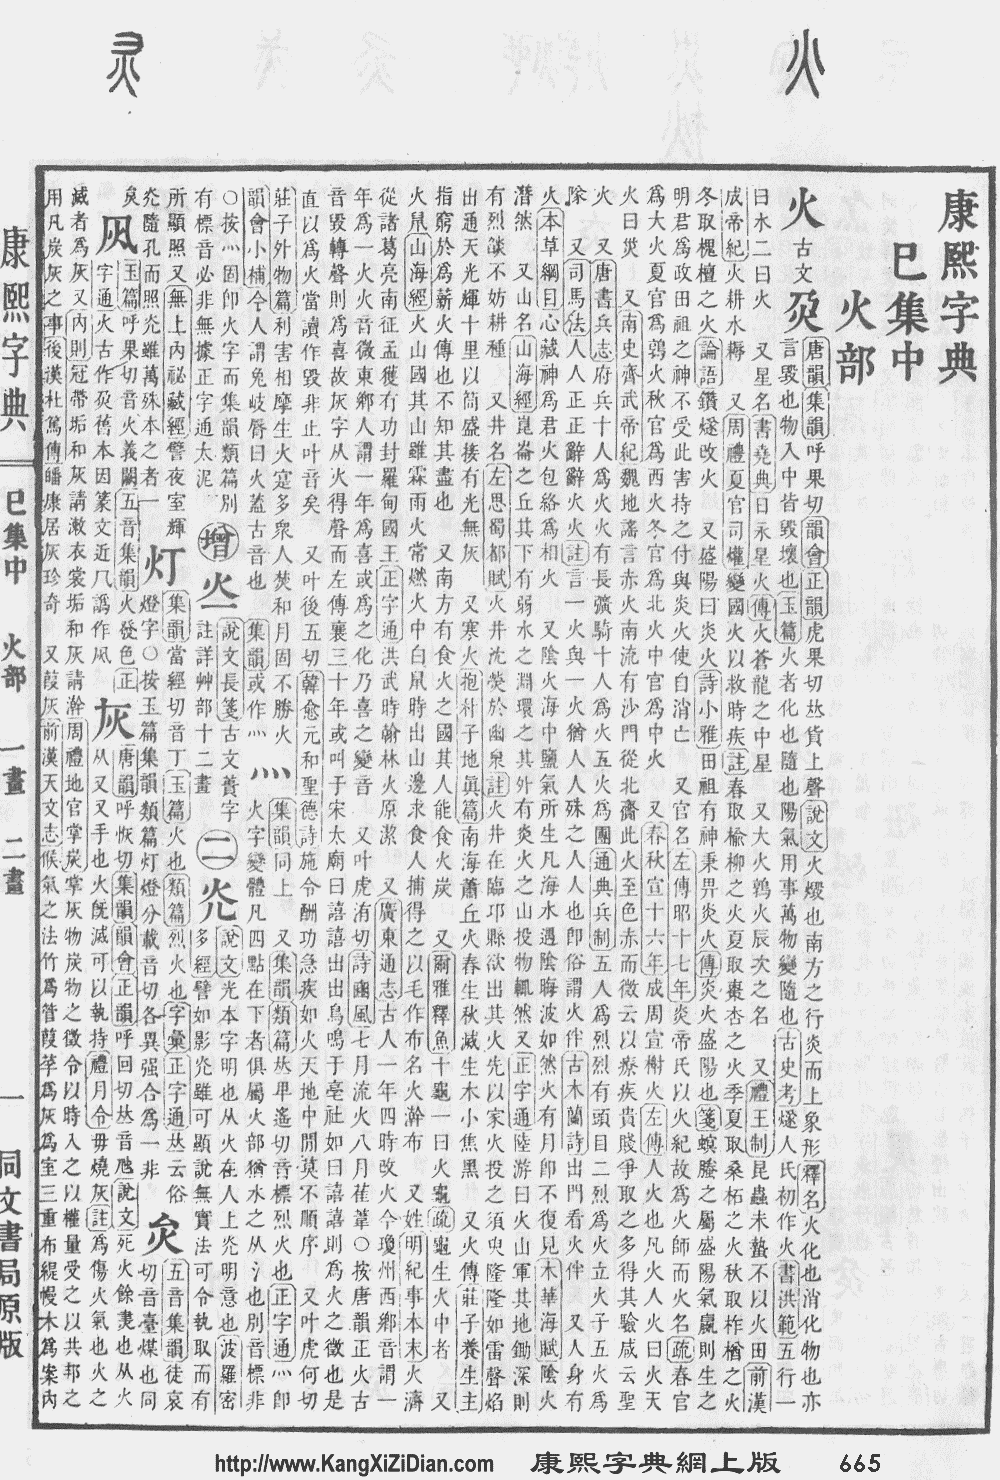 康熙字典
巳集中
火部
火 古文 𤆄
唐韻集韻呼果切韻會正韻虎果切𠀤貨上聲說文火燬也南方之行炎而上象形釋名火化也消化物也亦
言毀也物入中皆毀壞也玉篇火者化也隨也陽氣用事萬物變隨也古史考燧人氏初作火書洪範五行一
曰水二曰火 又星名書堯典日永星火傳火蒼龍之中星 又大火鶉火辰次之名 又禮王制昆蟲未蟄不以火田前漢
成帝紀火耕水耨 又周禮夏官司爟變國火以救時疾註春取榆柳之火夏取棗杏之火季夏取桑柘之火秋取柞楢之火
冬取槐檀之火論語鑽燧改火 又盛陽曰炎火詩小雅田祖有神秉畀炎火傳炎火盛陽也箋螟螣之屬盛陽氣嬴則生之
明君爲政田祖之神不受此害持之付與炎火使自消亡 又官名左傳昭十七年炎帝氏以火紀故爲火師而火名疏春官
爲大火夏官爲鶉火秋官爲西火冬官爲北火中官爲中火 又春秋宣十六年成周宣榭火左傳人火也凡火人火曰火天
火曰災 又南史齊武帝紀魏地謠言赤火南流有沙門從北齎此火至色赤而微云以療疾貴賤爭取之多得其驗咸云聖
火 又唐書兵志府兵十人爲火火有長彍騎十人爲火五火爲團通典兵制五人爲烈烈有頭目二烈爲火立火子五火爲
隊 又司馬法人人正正辭辭火火註言一火與一火猶人人殊之人人也卽俗謂火伴古木蘭詩出門看火伴 又人身有
火本草綱目心藏神爲君火包絡爲相火 又隂火海中鹽氣所生凡海水遇隂晦波如然火有月卽不復見木華海賦隂火
潛然 又山名山海經崑崙之丘其下有弱水之淵環之其外有炎火之山投物輒然又正字通陸游曰火山軍其地鋤深則
有烈燄不妨耕種 又井名左思蜀都賦火井沈熒於幽泉註火井在臨邛縣欲出其火先以家火投之須臾隆隆如雷聲焰
出通天光輝十里以筒盛接有光無灰 又寒火抱朴子地眞篇南海蕭丘火春生秋滅生木小焦黑 又火傳莊子養生主
指窮於爲薪火傳也不知其盡也 又南方有食火之國其人能食火炭 又爾雅釋魚十龜一曰火龜疏龜生火中者 又
火鼠山海經火山國其山雖霖雨火常燃火中白鼠時出山邊求食人捕得之以毛作布名火澣布 又姓明紀事本末火濟
從諸葛亮南征孟獲有功封羅甸國王正字通洪武時翰林火原潔 又廣東通志古人一年四時改火今瓊州西鄉音謂一
年爲一火火音微東鄉人謂一年爲喜或爲之化乃喜之變音 又叶虎洧切詩豳風七月流火八月萑葦○按唐韻正火古
音毀轉聲則爲喜故灰字从火得聲而左傳襄三十年或叫于宋太廟曰譆譆出出鳥鳴于亳社如曰譆譆則爲火之徵也是
直以爲火當讀作毀非止叶音矣 又叶後五切韓愈元和聖德詩施令酬功急疾如火天地中閒莫不順序 又叶虎何切
莊子外物篇利害相摩生火寔多衆人焚和月固不勝火
韻會小補今人謂兔岐脣曰火蓋古音也 集韻或作灬
灬
集韻同上 又集韻類篇𠀤𤰞遙切音標烈火也正字通灬卽
火字變體凡四點在下者俱屬火部猶水之从氵也別音標非
○按灬固卽火字而集韻類篇別
有標音必非無據正字通太泥
增
一
說文長箋古文蕢字
註詳艸部十二畫
二
灮
說文光本字明也从火在人上灮明意也波羅密
多經譬如影灮雖可顯說無實法可令執取而有
所顯照又無上內祕藏經譬夜室輝
灮隨孔而照灮雖萬殊本之者一
灯
集韻當經切音丁玉篇火也類篇烈火也字彙正字通𠀤云俗
燈字○按玉篇集韻類篇灯燈分載音切各異强合爲一非
五音集韻徒哀
切音臺煤也同
炱
玉篇呼果切音火義闕五音集韻火發色正
字通火古作𤆄舊本因篆文近譌作
灰
唐韻呼恢切集韻韻會正韻呼回切𠀤音虺說文死火餘㶳也从火
从又又手也火旣滅可以執持禮月令毋燒灰註爲傷火氣也火之
滅者爲灰又內則冠帶垢和灰請漱衣裳垢和灰請澣周禮地官掌炭掌灰物炭物之徵令以時入之以權量受之以共邦之
用凡炭灰之事後漢杜篤傳燔康居灰珍奇 又葭灰前漢天文志候氣之法竹爲管葭莩爲灰爲室三重布緹幔木爲案內
康熙字典 巳集中 火部 一畫 二畫 一 同文書局原版
http://www.KangXiZiDian.com 康熙字典網上版 665